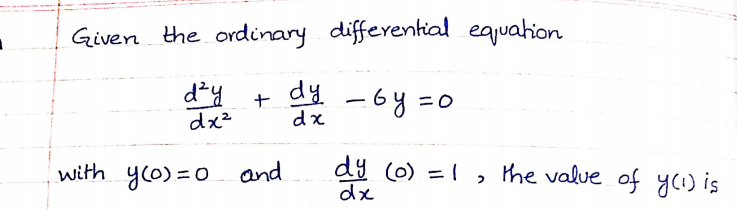 Given the ordinary differential equation
d²y/dx² + dy/dx - 6y = 0
with y(0) = 0 and dy/dx (0) = 1 , the value of y(1) is